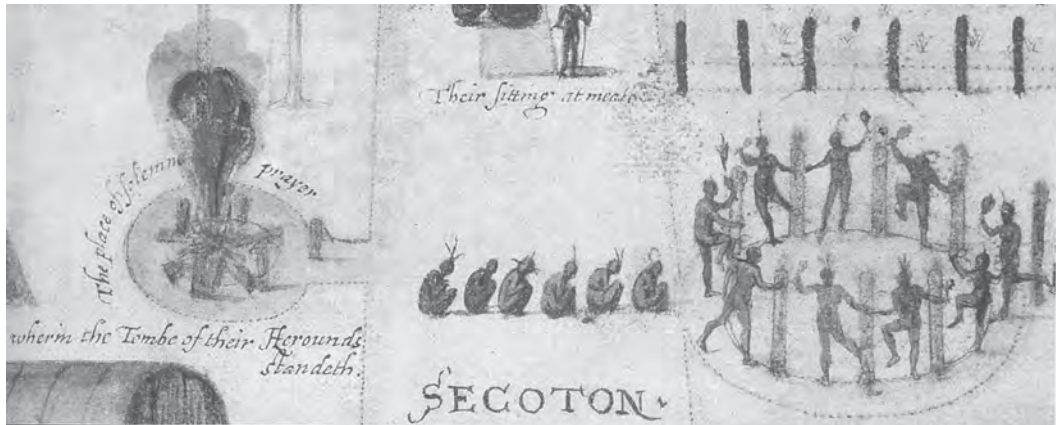 Their sitting at meate
The place of solemne prayer
wherin the Tombe of their Herounds
standeth.
SECOTON